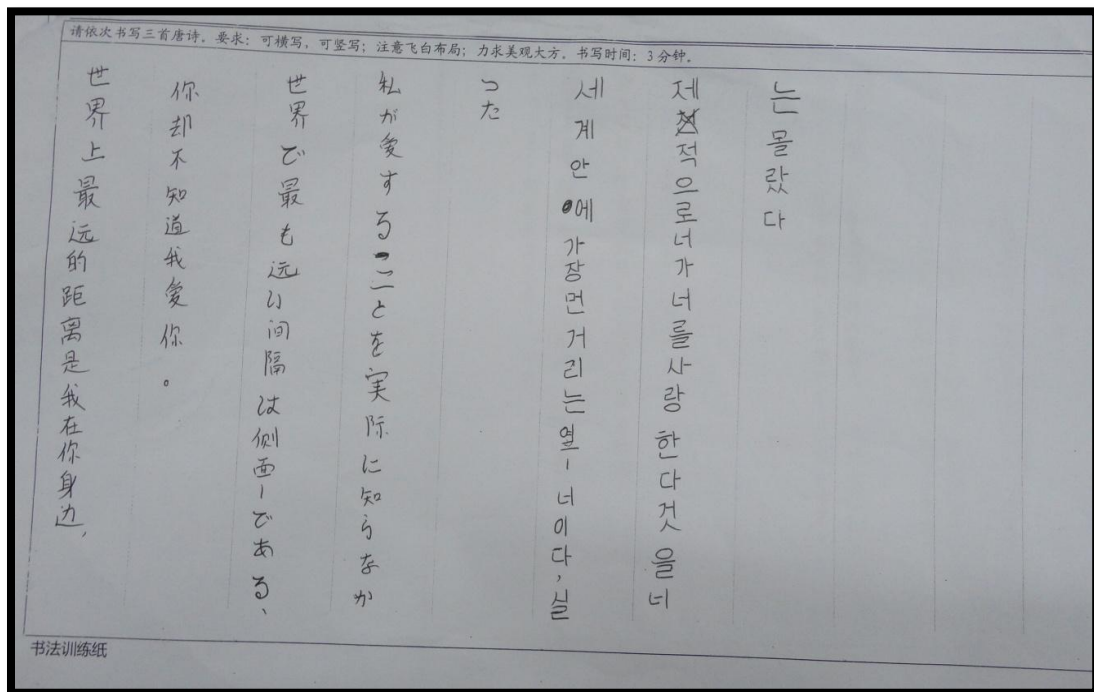 请依次书写三首唐诗。要求：可横写，可竖写；注意飞白布局；力求美观大方。书写时间：3分钟。
世界上最远的距离是我在你身边,
你却不知道我爱你。
世界で最も远い间隔は侧面ーである、
私が愛することを実际に知らなか
った
세계안에가장먼거리는옆ー너이다,실
제적으로너가너를사랑한다것을너
는몰랐다
书法训练纸